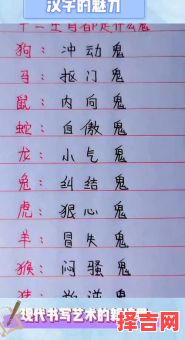 汉字的魅力
十二生肖都是什么鬼
狗：冲动鬼
马：抠门鬼
鼠：内向鬼
蛇：自傲鬼
龙：小气鬼
兔：纠结鬼
虎：狠心鬼
羊：冒失鬼
猴：闷骚鬼
现代书写艺术的
择吉网